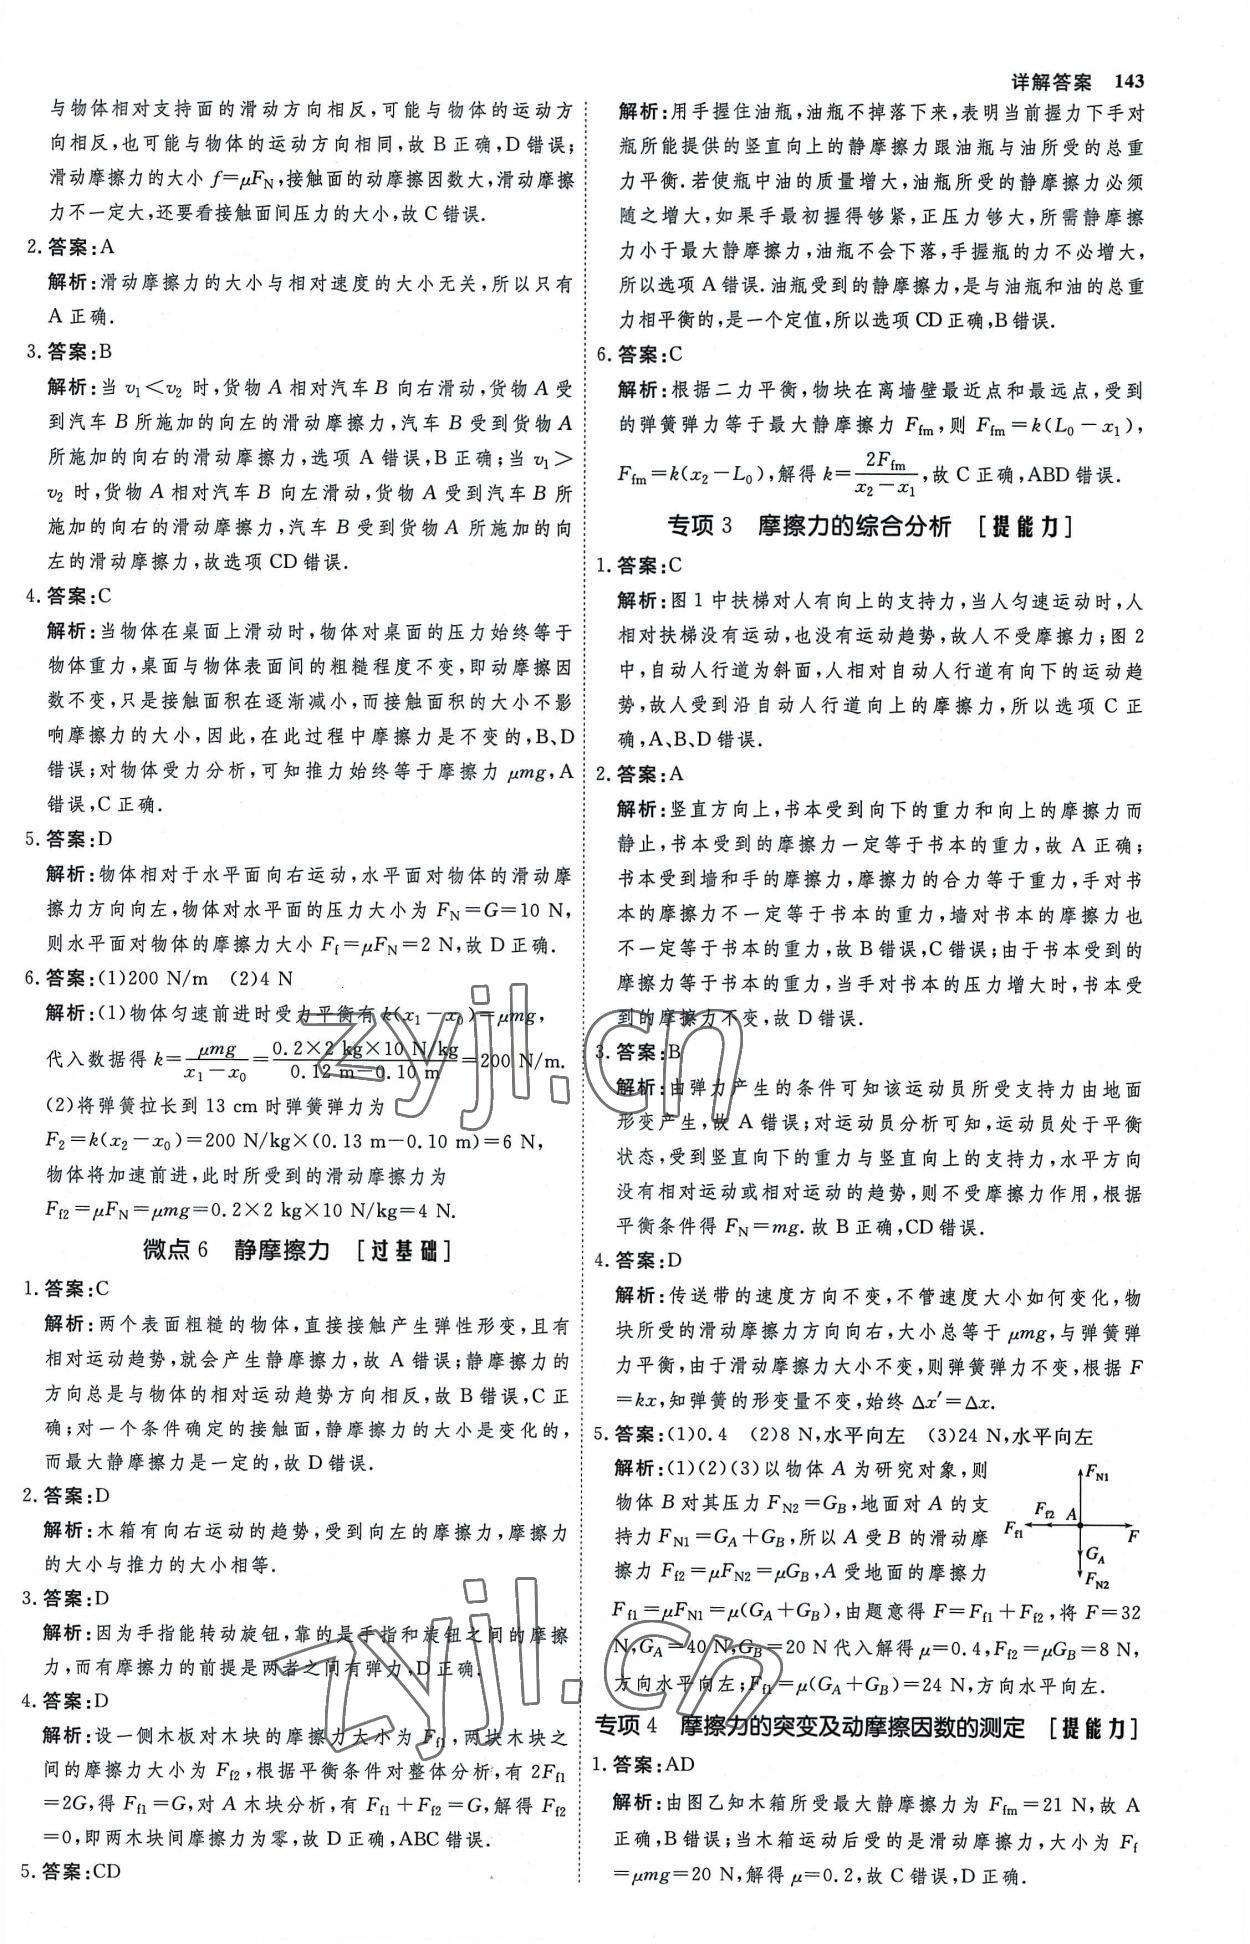 详解答案 143
与物体相对支持面的滑动方向相反,可能与物体的运动方
向相反,也可能与物体的运动方向相同,故 B 正确,D 错误;
滑动摩擦力的大小 f=μF_N,接触面的动摩擦因数大,滑动摩擦
力不一定大,还要看接触面间压力的大小,故 C 错误.
2. 答案:A
解析:滑动摩擦力的大小与相对速度的大小无关,所以只有
A 正确.
3. 答案:B
解析:当 v₁<v₂ 时,货物 A 相对汽车 B 向右滑动,货物 A 受
到汽车 B 所施加的向左的滑动摩擦力,汽车 B 受到货物 A
所施加的向右的滑动摩擦力,选项 A 错误,B 正确;当 v₁>
v₂ 时,货物 A 相对汽车 B 向左滑动,货物 A 受到汽车 B 所
施加的向右的滑动摩擦力,汽车 B 受到货物 A 所施加的向
左的滑动摩擦力,故选项 CD 错误.
4. 答案:C
解析:当物体在桌面上滑动时,物体对桌面的压力始终等于
物体重力,桌面与物体表面间的粗糙程度不变,即动摩擦因
数不变,只是接触面积在逐渐减小,而接触面积的大小不影
响摩擦力的大小,因此,在此过程中摩擦力是不变的,B、D
错误;对物体受力分析,可知推力始终等于摩擦力 μmg,A
错误,C 正确.
5. 答案:D
解析:物体相对于水平面向右运动,水平面对物体的滑动摩
擦力方向向左,物体对水平面的压力大小为 F_N=G=10 N,
则水平面对物体的摩擦力大小 F_f=μF_N=2 N,故 D 正确.
6. 答案:(1)200 N/m (2)4 N
解析:(1)物体匀速前进时受力平衡有 k(x₁-x₀)=μmg,
代入数据得 k=μmg/(x₁-x₀)=(0.2×2 kg×10 N/kg)/(0.12 m-0.10 m)=200 N/m.
(2)将弹簧拉长到 13 cm 时弹簧弹力为
F₂=k(x₂-x₀)=200 N/kg×(0.13 m-0.10 m)=6 N,
物体将加速前进,此时所受到的滑动摩擦力为
F_f2=μF_N=μmg=0.2×2 kg×10 N/kg=4 N.
微点 6 静摩擦力 [过基础]
1. 答案:C
解析:两个表面粗糙的物体,直接接触产生弹性形变,且有
相对运动趋势,就会产生静摩擦力,故 A 错误;静摩擦力的
方向总是与物体的相对运动趋势方向相反,故 B 错误,C 正
确;对一个条件确定的接触面,静摩擦力的大小是变化的,
而最大静摩擦力是一定的,故 D 错误.
2. 答案:D
解析:木箱有向右运动的趋势,受到向左的摩擦力,摩擦力
的大小与推力的大小相等.
3. 答案:D
解析:因为手指能转动旋钮,靠的是手指和旋钮之间的摩擦
力,而有摩擦力的前提是两者之间有弹力,D 正确.
4. 答案:D
解析:设一侧木板对木块的摩擦力大小为 F_f1,两木块之
间的摩擦力大小为 F_f2,根据平衡条件对整体分析,有 2F_f1
=2G,得 F_f1=G,对 A 木块分析,有 F_f1+F_f2=G,解得 F_f2
=0,即两木块间摩擦力为零,故 D 正确,ABC 错误.
5. 答案:CD
解析:用手握住油瓶,油瓶不掉落下来,表明当前握力下手对
瓶所能提供的竖直向上的静摩擦力跟油瓶与油所受的总重
力平衡.若使瓶中油的质量增大,油瓶所受的静摩擦力必须
随之增大,如果手最初握得够紧,正压力够大,所需静摩擦
力小于最大静摩擦力,油瓶不会下落,手握瓶的力不必增大,
所以选项 A 错误.油瓶受到的静摩擦力,是与油瓶和油的总重
力相平衡的,是一个定值,所以选项 CD 正确,B 错误.
6. 答案:C
解析:根据二力平衡,物块在离墙壁最近点和最远点,受到
的弹簧弹力等于最大静摩擦力 F_fm,则 F_fm=k(L₀-x₁),
F_fm=k(x₂-L₀),解得 k=2F_fm/(x₂-x₁),故 C 正确,ABD 错误.
专项 3 摩擦力的综合分析 [提能力]
1. 答案:C
解析:图 1 中扶梯对人有向上的支持力,当人匀速运动时,人
相对扶梯没有运动,也没有运动趋势,故人不受摩擦力;图 2
中,自动人行道为斜面,人相对自动人行道有向下的运动趋
势,故人受到沿自动人行道向上的摩擦力,所以选项 C 正
确,A、B、D 错误.
2. 答案:A
解析:竖直方向上,书本受到向下的重力和向上的摩擦力而
静止,书本受到的摩擦力一定等于书本的重力,故 A 正确;
书本受到墙和手的摩擦力,摩擦力的合力等于重力,手对书
本的摩擦力不一定等于书本的重力,墙对书本的摩擦力也
不一定等于书本的重力,故 B 错误,C 错误;由于书本受到的
摩擦力等于书本的重力,当手对书本的压力增大时,书本受
到的摩擦力不变,故 D 错误.
3. 答案:B
解析:由弹力产生的条件可知该运动员所受支持力由地面
形变产生,故 A 错误;对运动员分析可知,运动员处于平衡
状态,受到竖直向下的重力与竖直向上的支持力,水平方向
没有相对运动或相对运动的趋势,则不受摩擦力作用,根据
平衡条件得 F_N=mg.故 B 正确,CD 错误.
4. 答案:D
解析:传送带的速度方向不变,不管速度大小如何变化,物
块所受的滑动摩擦力方向向右,大小总等于 μmg,与弹簧弹
力平衡,由于滑动摩擦力大小不变,则弹簧弹力不变,根据 F
=kx,知弹簧的形变量不变,始终 Δx′=Δx.
5. 答案:(1)0.4 (2)8 N,水平向左 (3)24 N,水平向左
解析:(1)(2)(3)以物体 A 为研究对象,则
物体 B 对其压力 F_N2=G_B,地面对 A 的支
持力 F_N1=G_A+G_B,所以 A 受 B 的滑动摩
擦力 F_f2=μF_N2=μG_B,A 受地面的摩擦力
F_N1
F_f2 A
F_f1 F
G_A
F_N2
F_f1=μF_N1=μ(G_A+G_B),由题意得 F=F_f1+F_f2,将 F=32
N,G_A=40 N,G_B=20 N 代入解得 μ=0.4,F_f2=μG_B=8 N,
方向水平向左;F_f1=μ(G_A+G_B)=24 N,方向水平向左.
专项 4 摩擦力的突变及动摩擦因数的测定 [提能力]
1. 答案:AD
解析:由图乙知木箱所受最大静摩擦力为 F_fm=21 N,故 A
正确,B 错误;当木箱运动后受的是滑动摩擦力,大小为 F_f
=μmg=20 N,解得 μ=0.2,故 C 错误,D 正确.
zyjl.cn
zyjl.cn